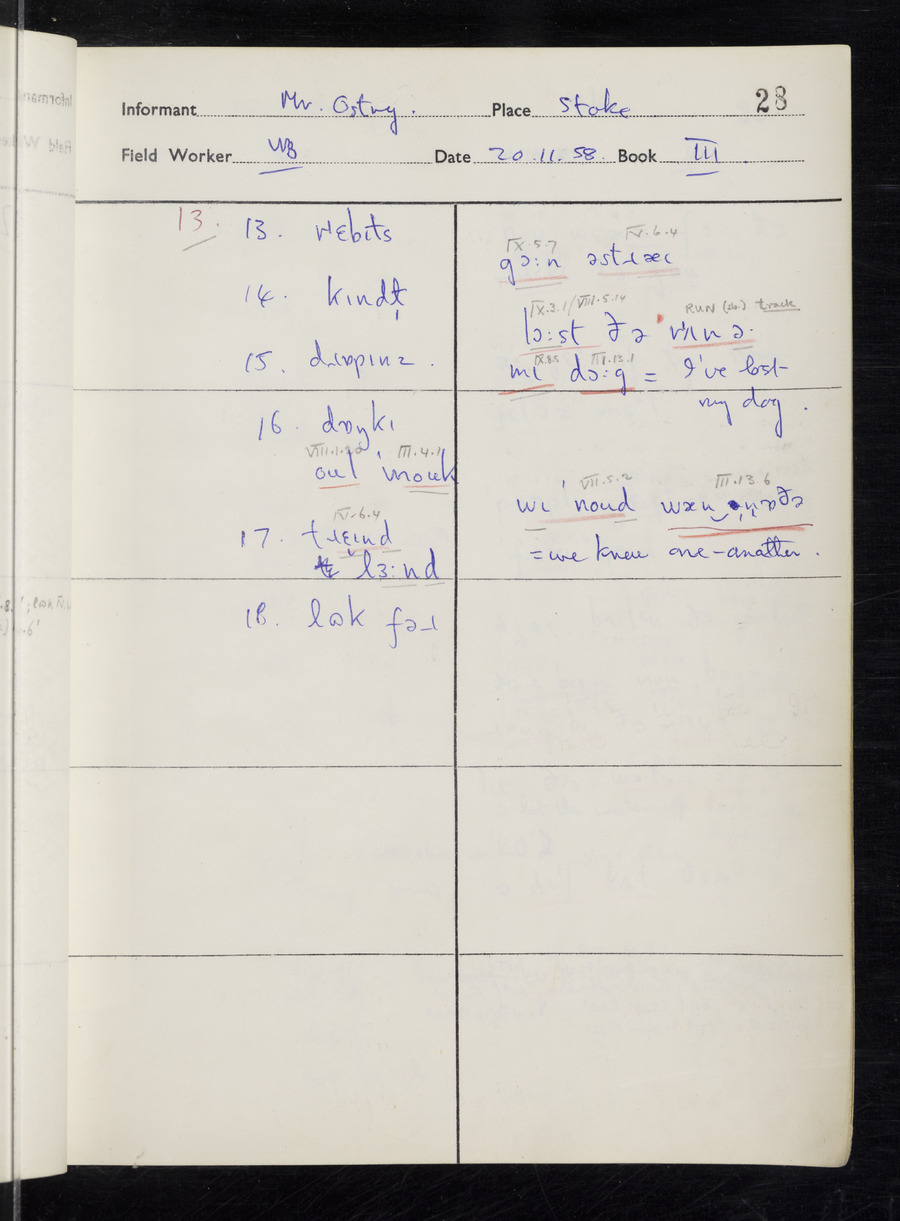 Informant Mr. Ostny. Place Stoke 28
Field Worker WB Date 20.11.58. Book III
13. 13. ɹɛbɪts
14. kɪndɫ̩
15. dɹɒpɪnz.
16. dɒŋkɪ
VIII.1.20 III.4.1
oʊl ˈmoʊk
IV.6.4
17. tɹɛɪnd
lɜːnd
18. lʊk fəɹ
IX.5.7 IV.6.4
gɔːn əstɹæɪ
IX.3.1/VIII.5.14 RUN (sb.) track
lɔːst ðə ˈɹʌnə.
IX.8.5 III.13.1
mɪ dɔːg = I've lost
my dog.
VII.5.2 III.13.6
wɪ ˈnoʊd wæn ənɒðə
= we knew one-another.